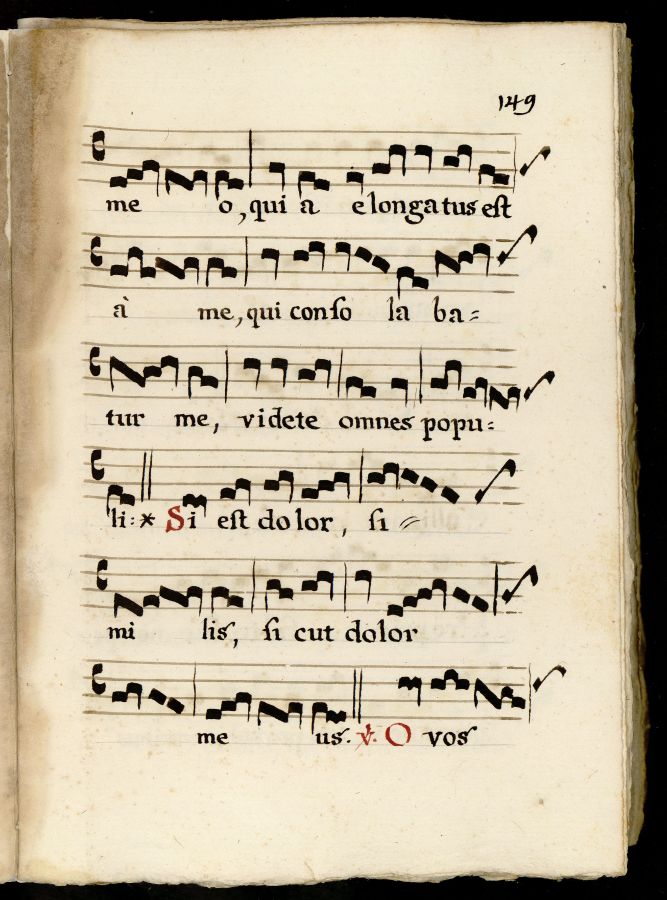 149
me o, qui a elongatus est
à me, qui conso la ba=
tur me, videte omnes popu:
li:* Si est dolor, si =
mi lis, si cut dolor
me us. ℣. O vos